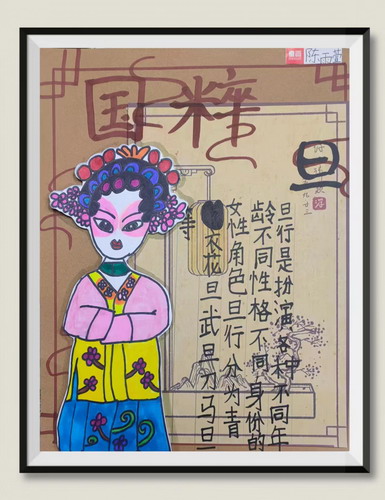 国粹
旦
旦行是扮演各种不同年
龄不同性格不同身份的
女性角色旦行分为青
衣花旦武旦刀马旦
等